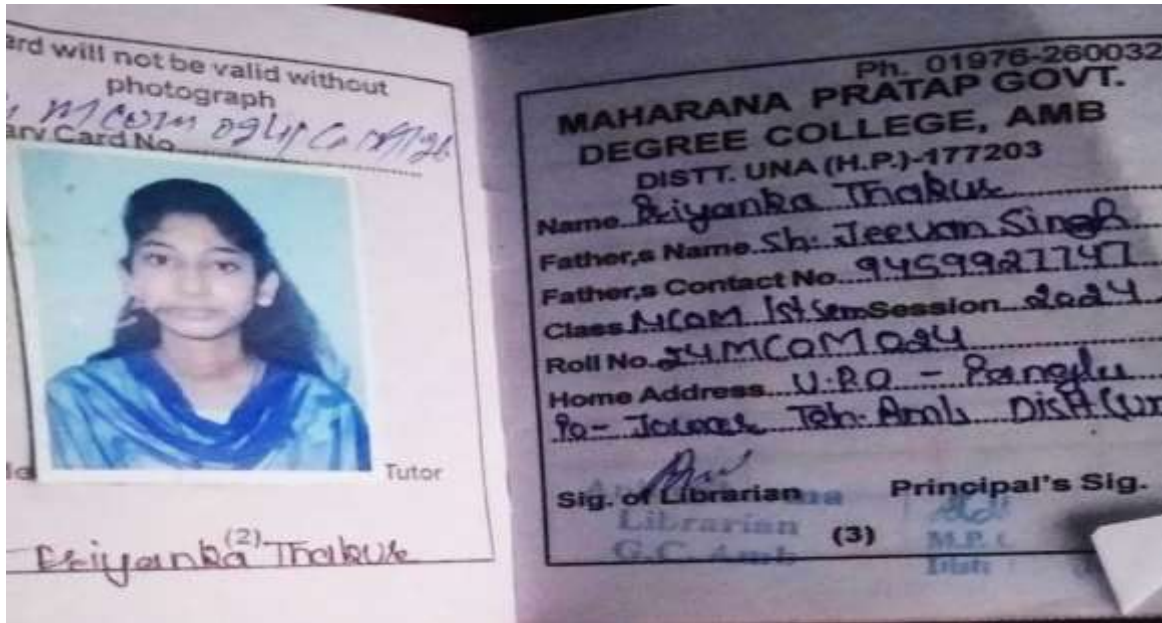 ard will not be valid without
photograph
MCOM
ary Card No
Tutor
(2)
Priyanka Thakur
Ph. 01976-260032
MAHARANA PRATAP GOVT.
DEGREE COLLEGE, AMB
DISTT. UNA (H.P.)-177203
Name Priyanka Thakur
Father,s Name Sh. Jeevan Singh
Father,s Contact No. 9459927747
Class MCOM 1st Sem Session 2024
Roll No. 24MCOM024
Home Address V.P.O -
Po- Teh. Amb Distt (Un
Sig. of Librarian Principal's Sig.
Librarian
G.C. Amb
(3)